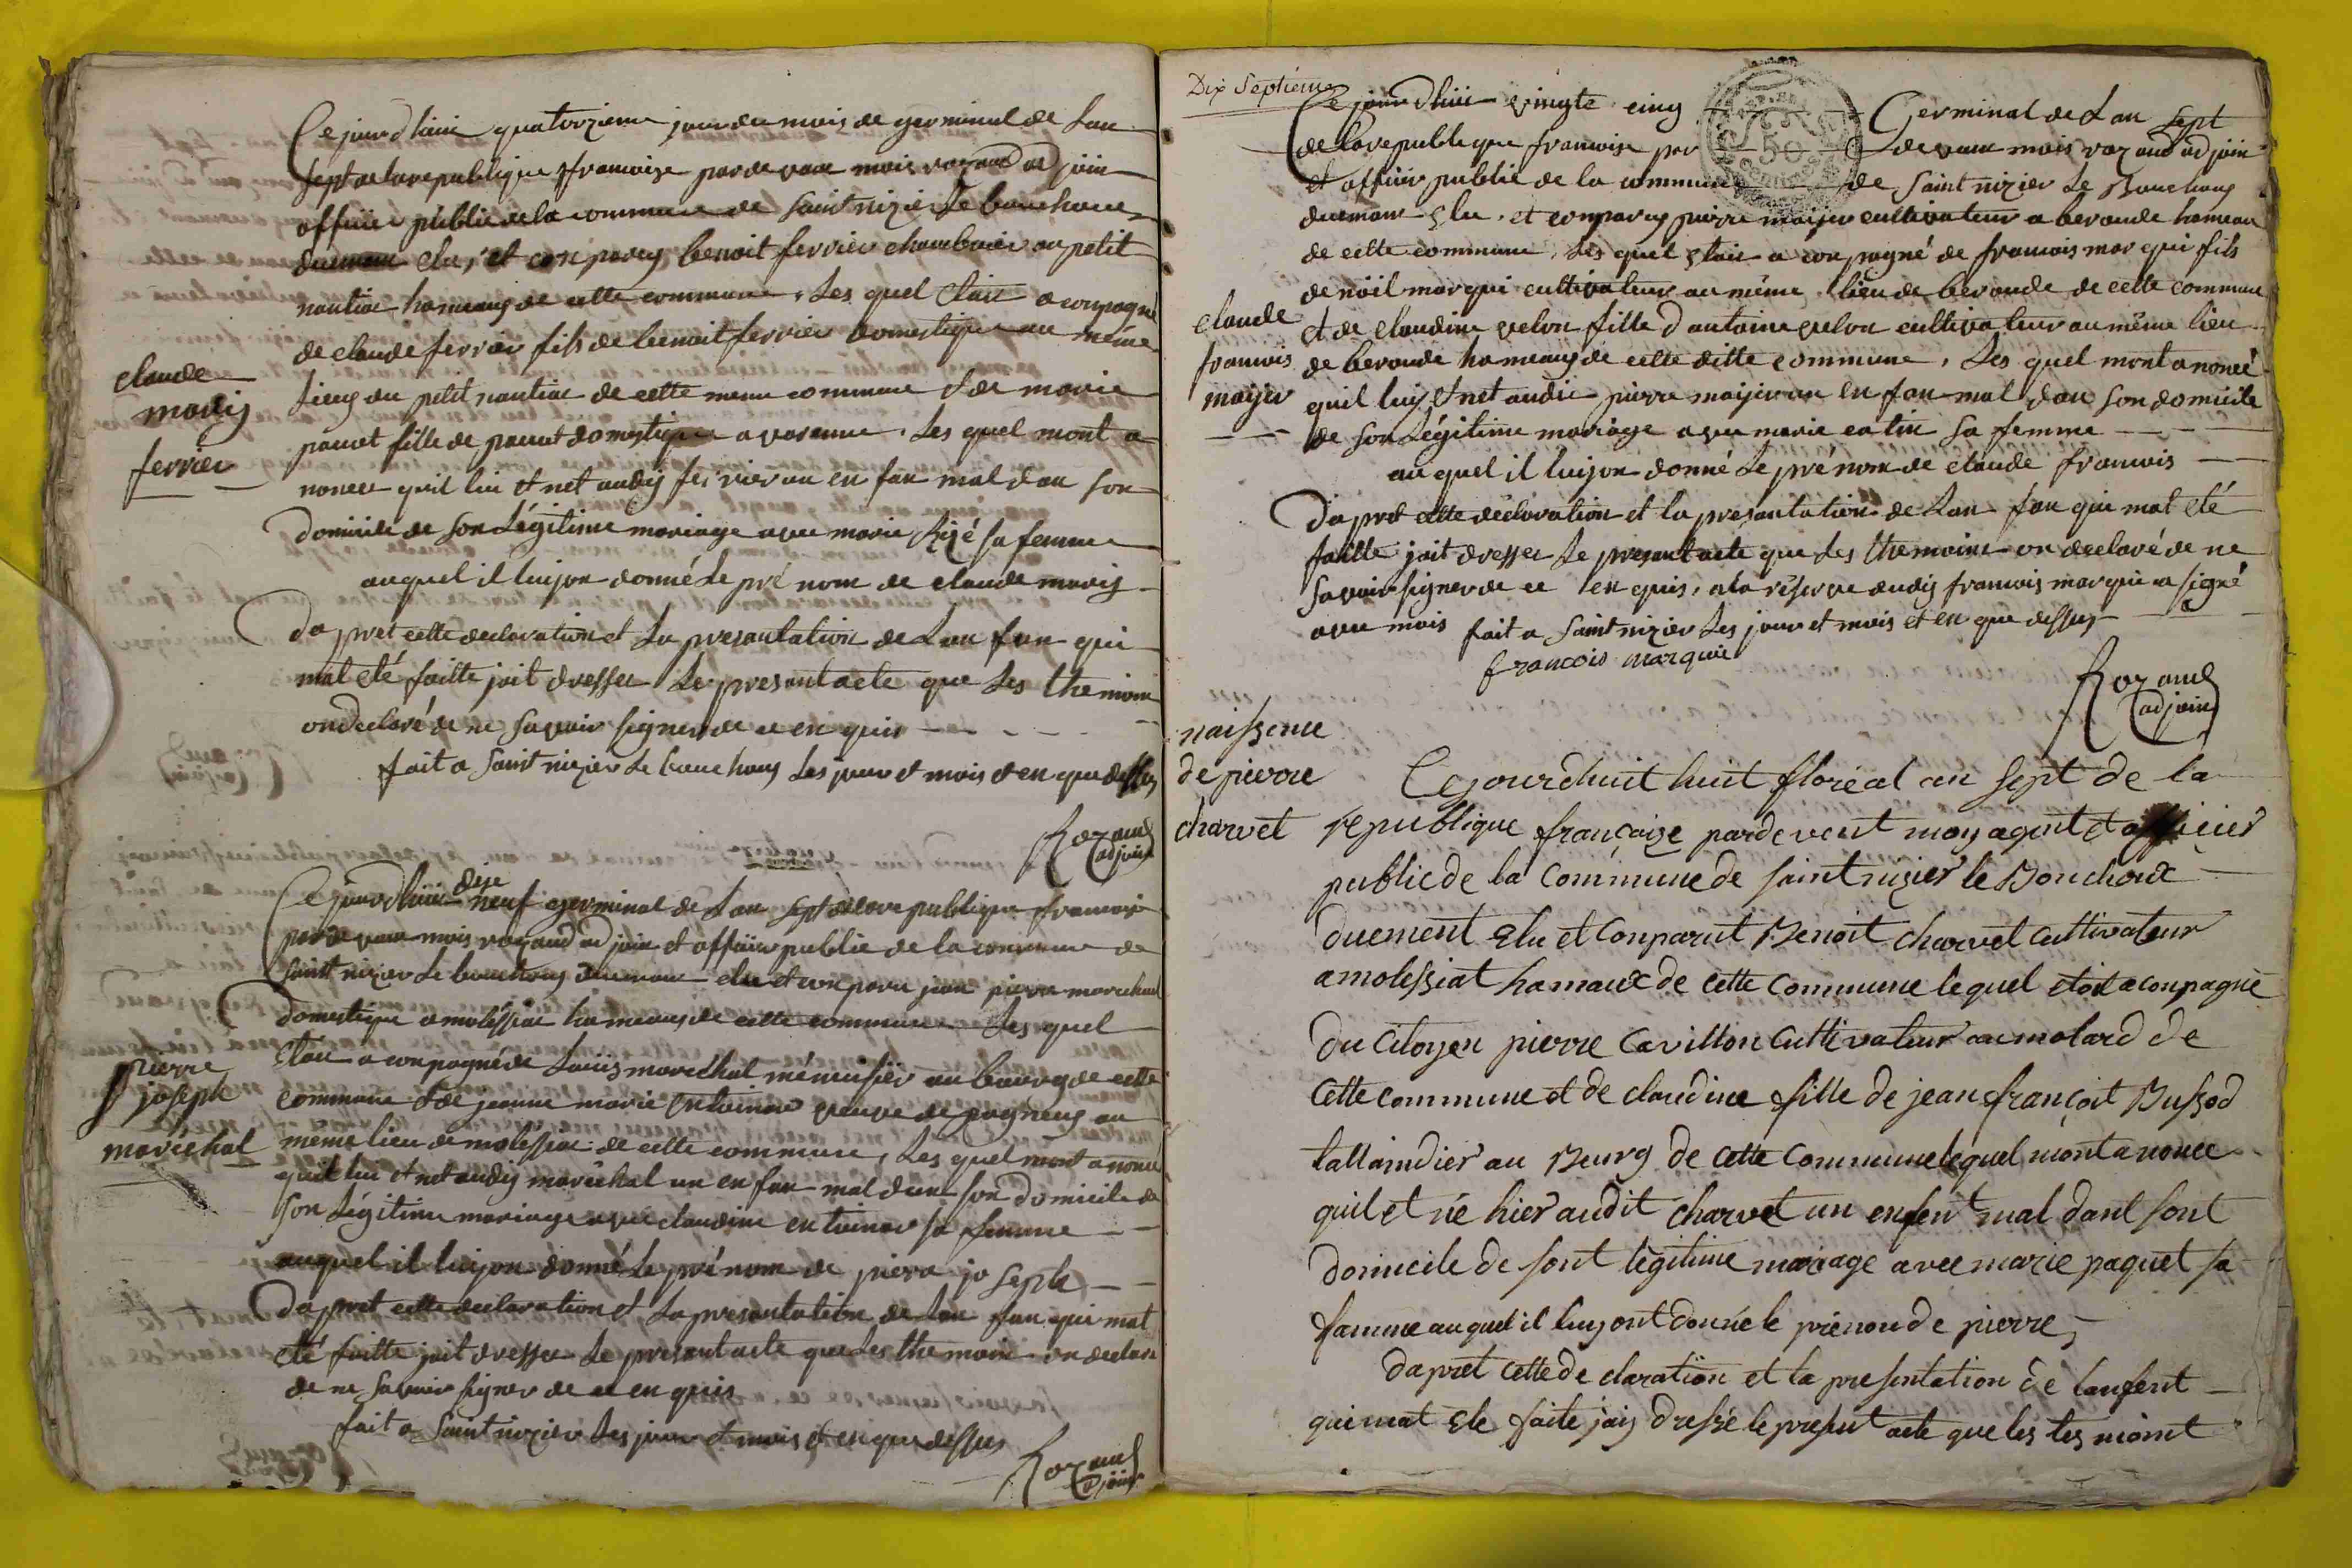 Ce jourdhuis quatorzieme jour du mois de germinal de Lan
sept de la republique francoise par de vau mois rozand ad join
officier public de la commune de Saint nizier Le bouchoux
duemau elu, et con parus benoit ferrier au petit
nantiat hameaux de cette commune, Les quel etais a conpagné
de claude ferrier fils de benoit ferrier domestique au même
Lieux du petit nantiat de cette meme commune et de marie
fille de domestique a varenne. Les quel mont a
noncee quil lui et net audis ferrier un en fan mal dan son
domicile de son Légitime mariage avec marie sa femme
auquel il luijon donné Le pré nom de claude maris
claude
maris
ferrier
Da pret cette declaration et La presantation de Lan fan qui
mat eté faitte jait dresser Le present acte que Les themoin
on declaré de ne savoir signer de ce en quis
fait a Saint nizier Le bouchoux Les jour et mois et en que dessus
Rozand
adjoin
Ce jourdhuis dixe neuf germinal de Lan sept de la republique francoise
par de vau mois rozand ad join et officier public de la commune de
Saint nizier Le bouchoux duemau elu et con paru jean pierre marechal
domestique a molessiat hameaux de cette commune Les quel
etau a conpagné de Louis maréchal ménuisier au bourg de cette
commune et de jeanne marie veuve de au
même lieu de molessiat de cette commune, Les quel mont a noncé
quil lui et net audis maréchal un en fan mal dan son domicile de
son Légitime mariage avec claudine sa femme
auquel il luijon donné Le pré nom de piere jo seph
pierre
joseph
maréchal
Da pret cette declaration et La presantation de Lan fan qui mat
eté faitte jait dresser Le present acte que Les themoin on declaré
de ne savoir signer de ce en quis
fait a Saint nizier Les jour et mois et en que dessus
Rozand
adjoin
Dix Septiéme
Ce jourdhuis vingte cinq Germinal de Lan sept
de la republique francoise par de vau mois rozand ad join
et officier public de la commune de Saint nizier Le Bouchoux
duemau elu, et conparus pierre maijer cultivateur a beroude hameau
de cette commune, Les quel etais a con pagné de francois mar qui fils
de noil marqui cultivateur au même lieu de beroude de cette commune
et de claudine velon fille d antoine velon cultivateur au même lieu
de beroude hameaux de cette ditte commune, Les quel mont a noncé
quil luis et net audis pierre maijer un en fan mal dan son domicile
de son Légitime mariage avec marie catin sa femme
au quel il luijon donné Le pré nom de claude francois
claude
francois
maijer
Da pret cette déclaration et la presantation de Lan fan qui mat eté
faitte jait dresser Le present acte que Les themoins on declaré de ne
savoir signer de ce en quis, a la réserve audis francois marquis a signé
avec mois fait a Saint nizier Les jour et mois et en que dessus
francois marquis
Rozand
adjoin
naissence
de pierre
charvet
Cejourdhuit huit floréal an sept de la
republique françaize pardevent moy agent et officier
public de la Commune de saint nizier le Bouchoux
duement Elu et Conparut Benoit charvet cultivateur
amolessiat hamaux de cette Commune lequel etoit aconpagné
du citoyen pierre Cavillon Cultivateur au molard de
Cette Commune et de claudine fille de jean françoit Bussod
tallaindier au Bourg de cette Commune lequel mont anoncé
quil et né hier audit charvet un enfent mal dant sont
domicile de sont légitime mariage avec marie paquet sa
famme auquel il luy ont donné le prénon de pierre,
dapret cette de claration et la presentation de lanfent
qui mat Ete faite jais dressé le present acte que les tesmoint